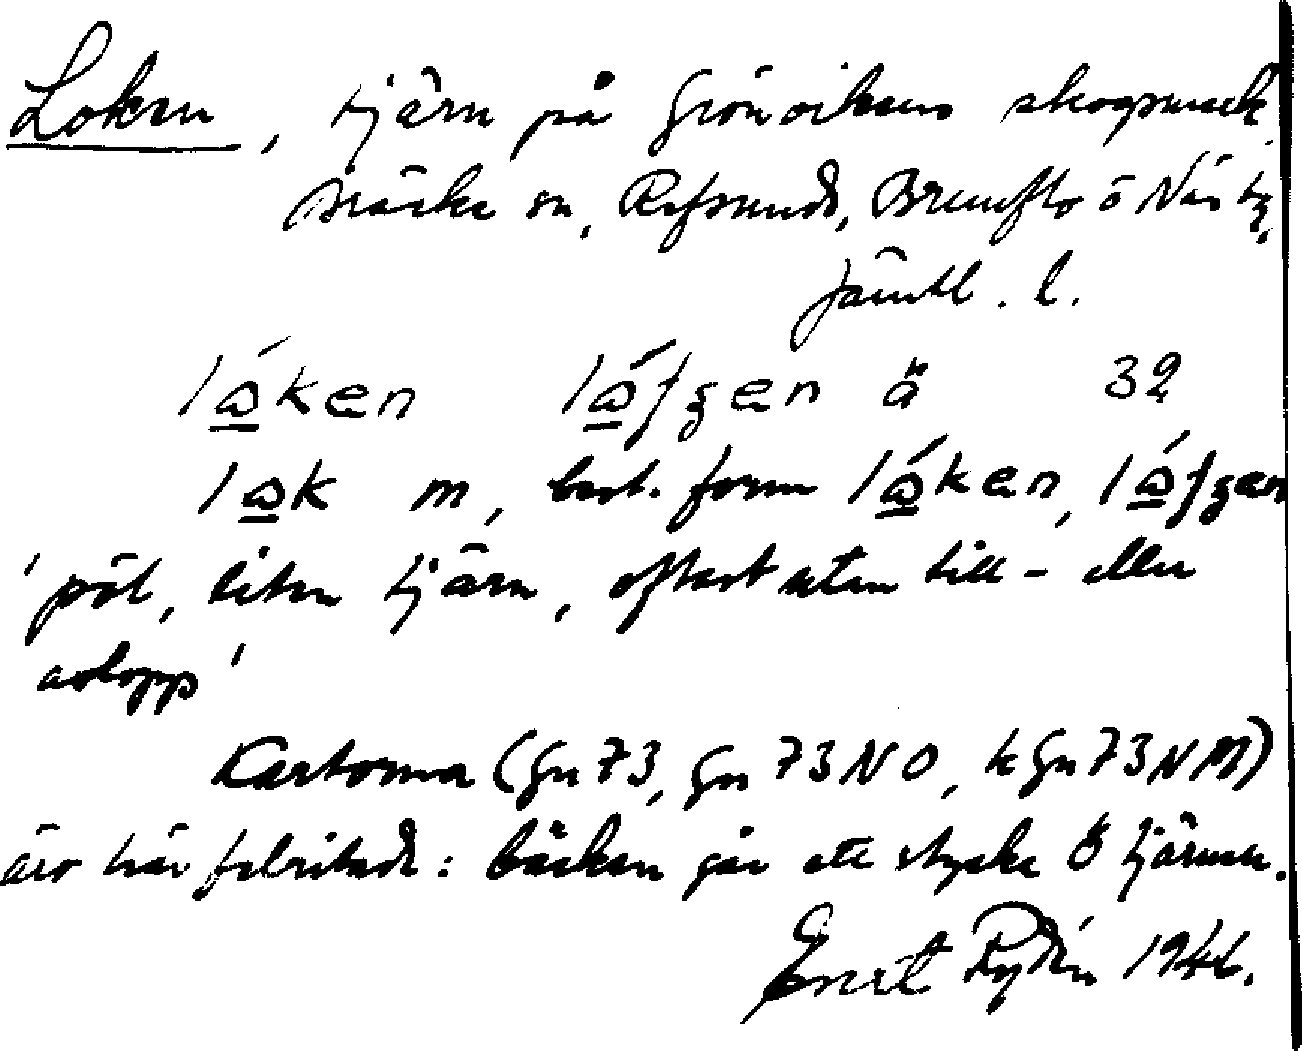 Loken, tjärn på Grönvikens skogsmark
Bräcke sn, Refsunds, Brunflo o Näs tg,
Jämtl. l.
låken låʃʒen ä 32
låk m, best. form låken, låʃʒen
'pöl, liten tjärn, oftast utan till- eller
avlopp'
Kartorna (Gn 73, Gn 73 NO, kGn 73 NM)
äro här felritade: bäcken går ett stycke Ö tjärnen.
Ernst Rydén